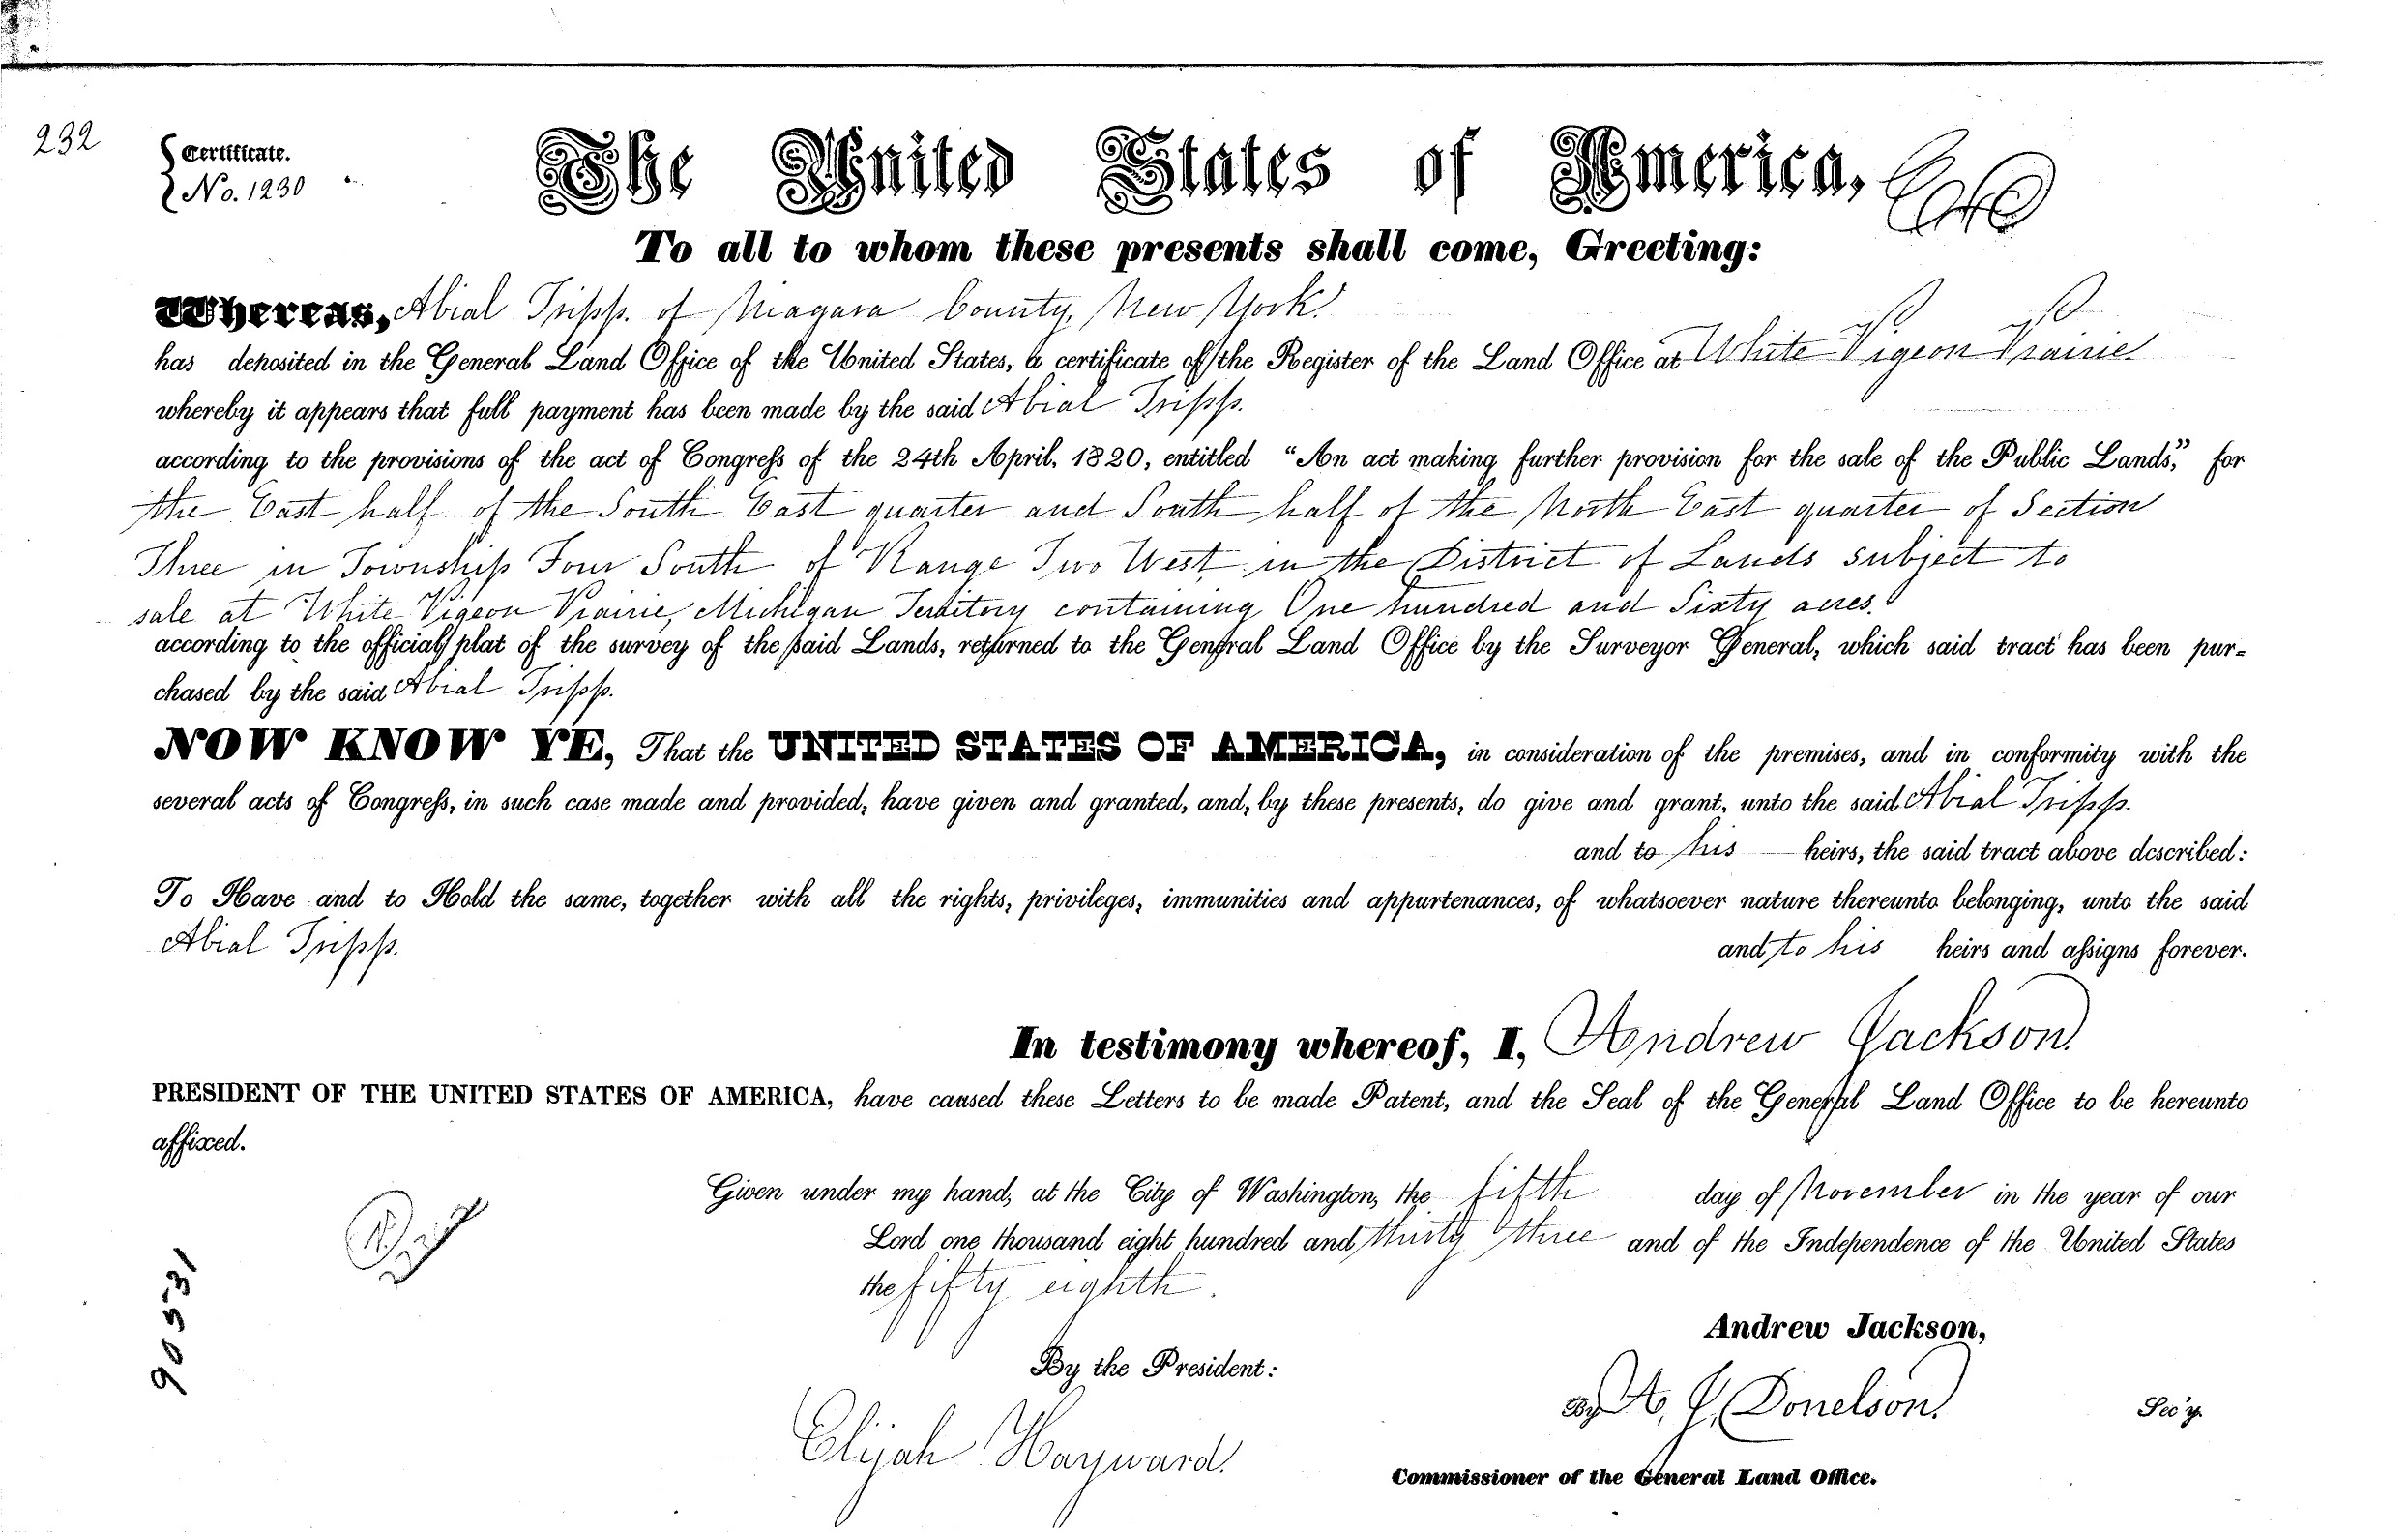 232
Certificate.
No. 1230
The United States of America,
To all to whom these presents shall come, Greeting:
Whereas, Abial Tripp. of Niagara County, New York.
has deposited in the General Land Office of the United States, a certificate of the Register of the Land Office at White Pigeon Prairie
whereby it appears that full payment has been made by the said Abial Tripp.
according to the provisions of the act of Congress of the 24th April, 1820, entitled "An act making further provision for the sale of the Public Lands," for
the East half of the South East quarter and South half of the North East quarter of Section
Three in Township Four South of Range Two West in the District of Lands subject to
sale at White Pigeon Prairie, Michigan Territory containing One hundred and Sixty acres.
according to the official plat of the survey of the said Lands, returned to the General Land Office by the Surveyor General, which said tract has been pur=
chased by the said Abial Tripp.
NOW KNOW YE, That the UNITED STATES OF AMERICA, in consideration of the premises, and in conformity with the
several acts of Congress, in such case made and provided, have given and granted, and, by these presents, do give and grant, unto the said Abial Tripp.
and to his heirs, the said tract above described:
To Have and to Hold the same, together with all the rights, privileges, immunities and appurtenances, of whatsoever nature thereunto belonging, unto the said
Abial Tripp. and to his heirs and assigns forever.
In testimony whereof, I, Andrew Jackson
PRESIDENT OF THE UNITED STATES OF AMERICA, have caused these Letters to be made Patent, and the Seal of the General Land Office to be hereunto
affixed.
Given under my hand, at the City of Washington, the fifth day of November in the year of our
Lord one thousand eight hundred and thirty three and of the Independence of the United States
the fifty eighth.
Andrew Jackson,
By the President:
By A. J. Donelson. Sec'y.
Elijah Hayward.
Commissioner of the General Land Office.
90531